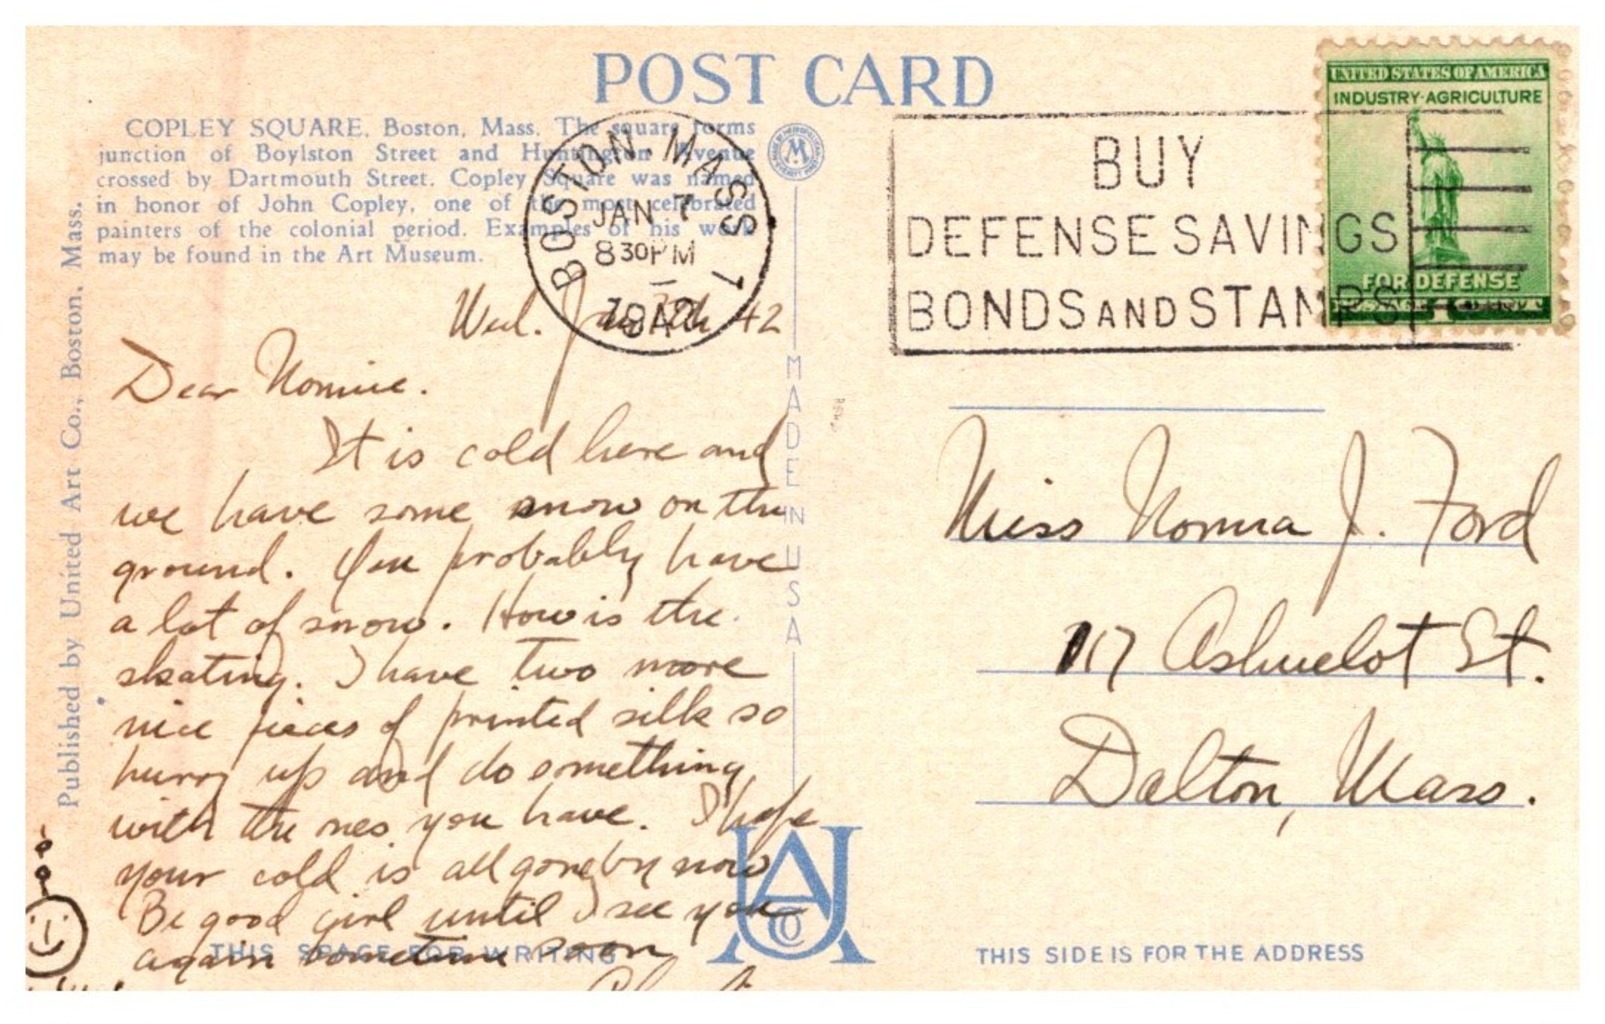 POST CARD
COPLEY SQUARE, Boston, Mass. The square forms
junction of Boylston Street and Huntington Avenue
crossed by Dartmouth Street. Copley Square was named
in honor of John Copley, one of the most celebrated
painters of the colonial period. Examples of his work
may be found in the Art Museum.
Published by United Art Co., Boston, Mass.
M
BOSTON. MASS. 1
JAN 7
830PM
1942
BUY
DEFENSE SAVINGS
BONDS AND STAMPS
UNITED STATES OF AMERICA
INDUSTRY·AGRICULTURE
FOR DEFENSE
MADE IN USA
Wed. Jan 7th 42
Dear Nomie.
It is cold here and
we have some snow on the
ground. You probably have
a lot of snow. How is the
skating. I have two more
nice pieces of printed silk so
hurry up and do something
with the ones you have. I hope
your cold is all gone by now
Be good girl until I see you
again sometime soon
Miss Norma J. Ford
117 Ashuelot St.
Dalton, Mass.
UA Co
THIS SPACE FOR WRITING
THIS SIDE IS FOR THE ADDRESS